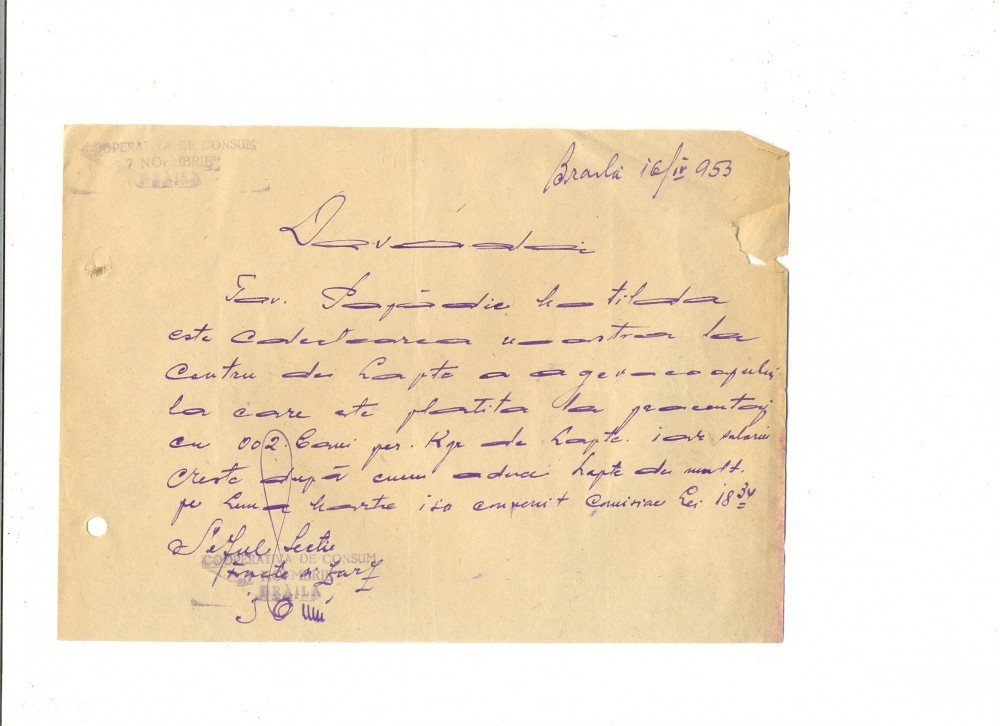 COOPERATIVA DE CONSUM
"7 NOEMBRIE"
BRAILA
Braila 16/IV 953
Dovada
Tov. Papadie Matilda
este colectoarea noastra la
Centru de Lapte a
la care este platita la procentaj
cu 002. Bani per. Kgr de Lapte. iar salariu
creste după cum aduce Lapte de mult.
pe Luna Martie i so convenit Comision Lei 18 34
Seful Sectie
COOPERATIVA DE CONSUM
BRAILA